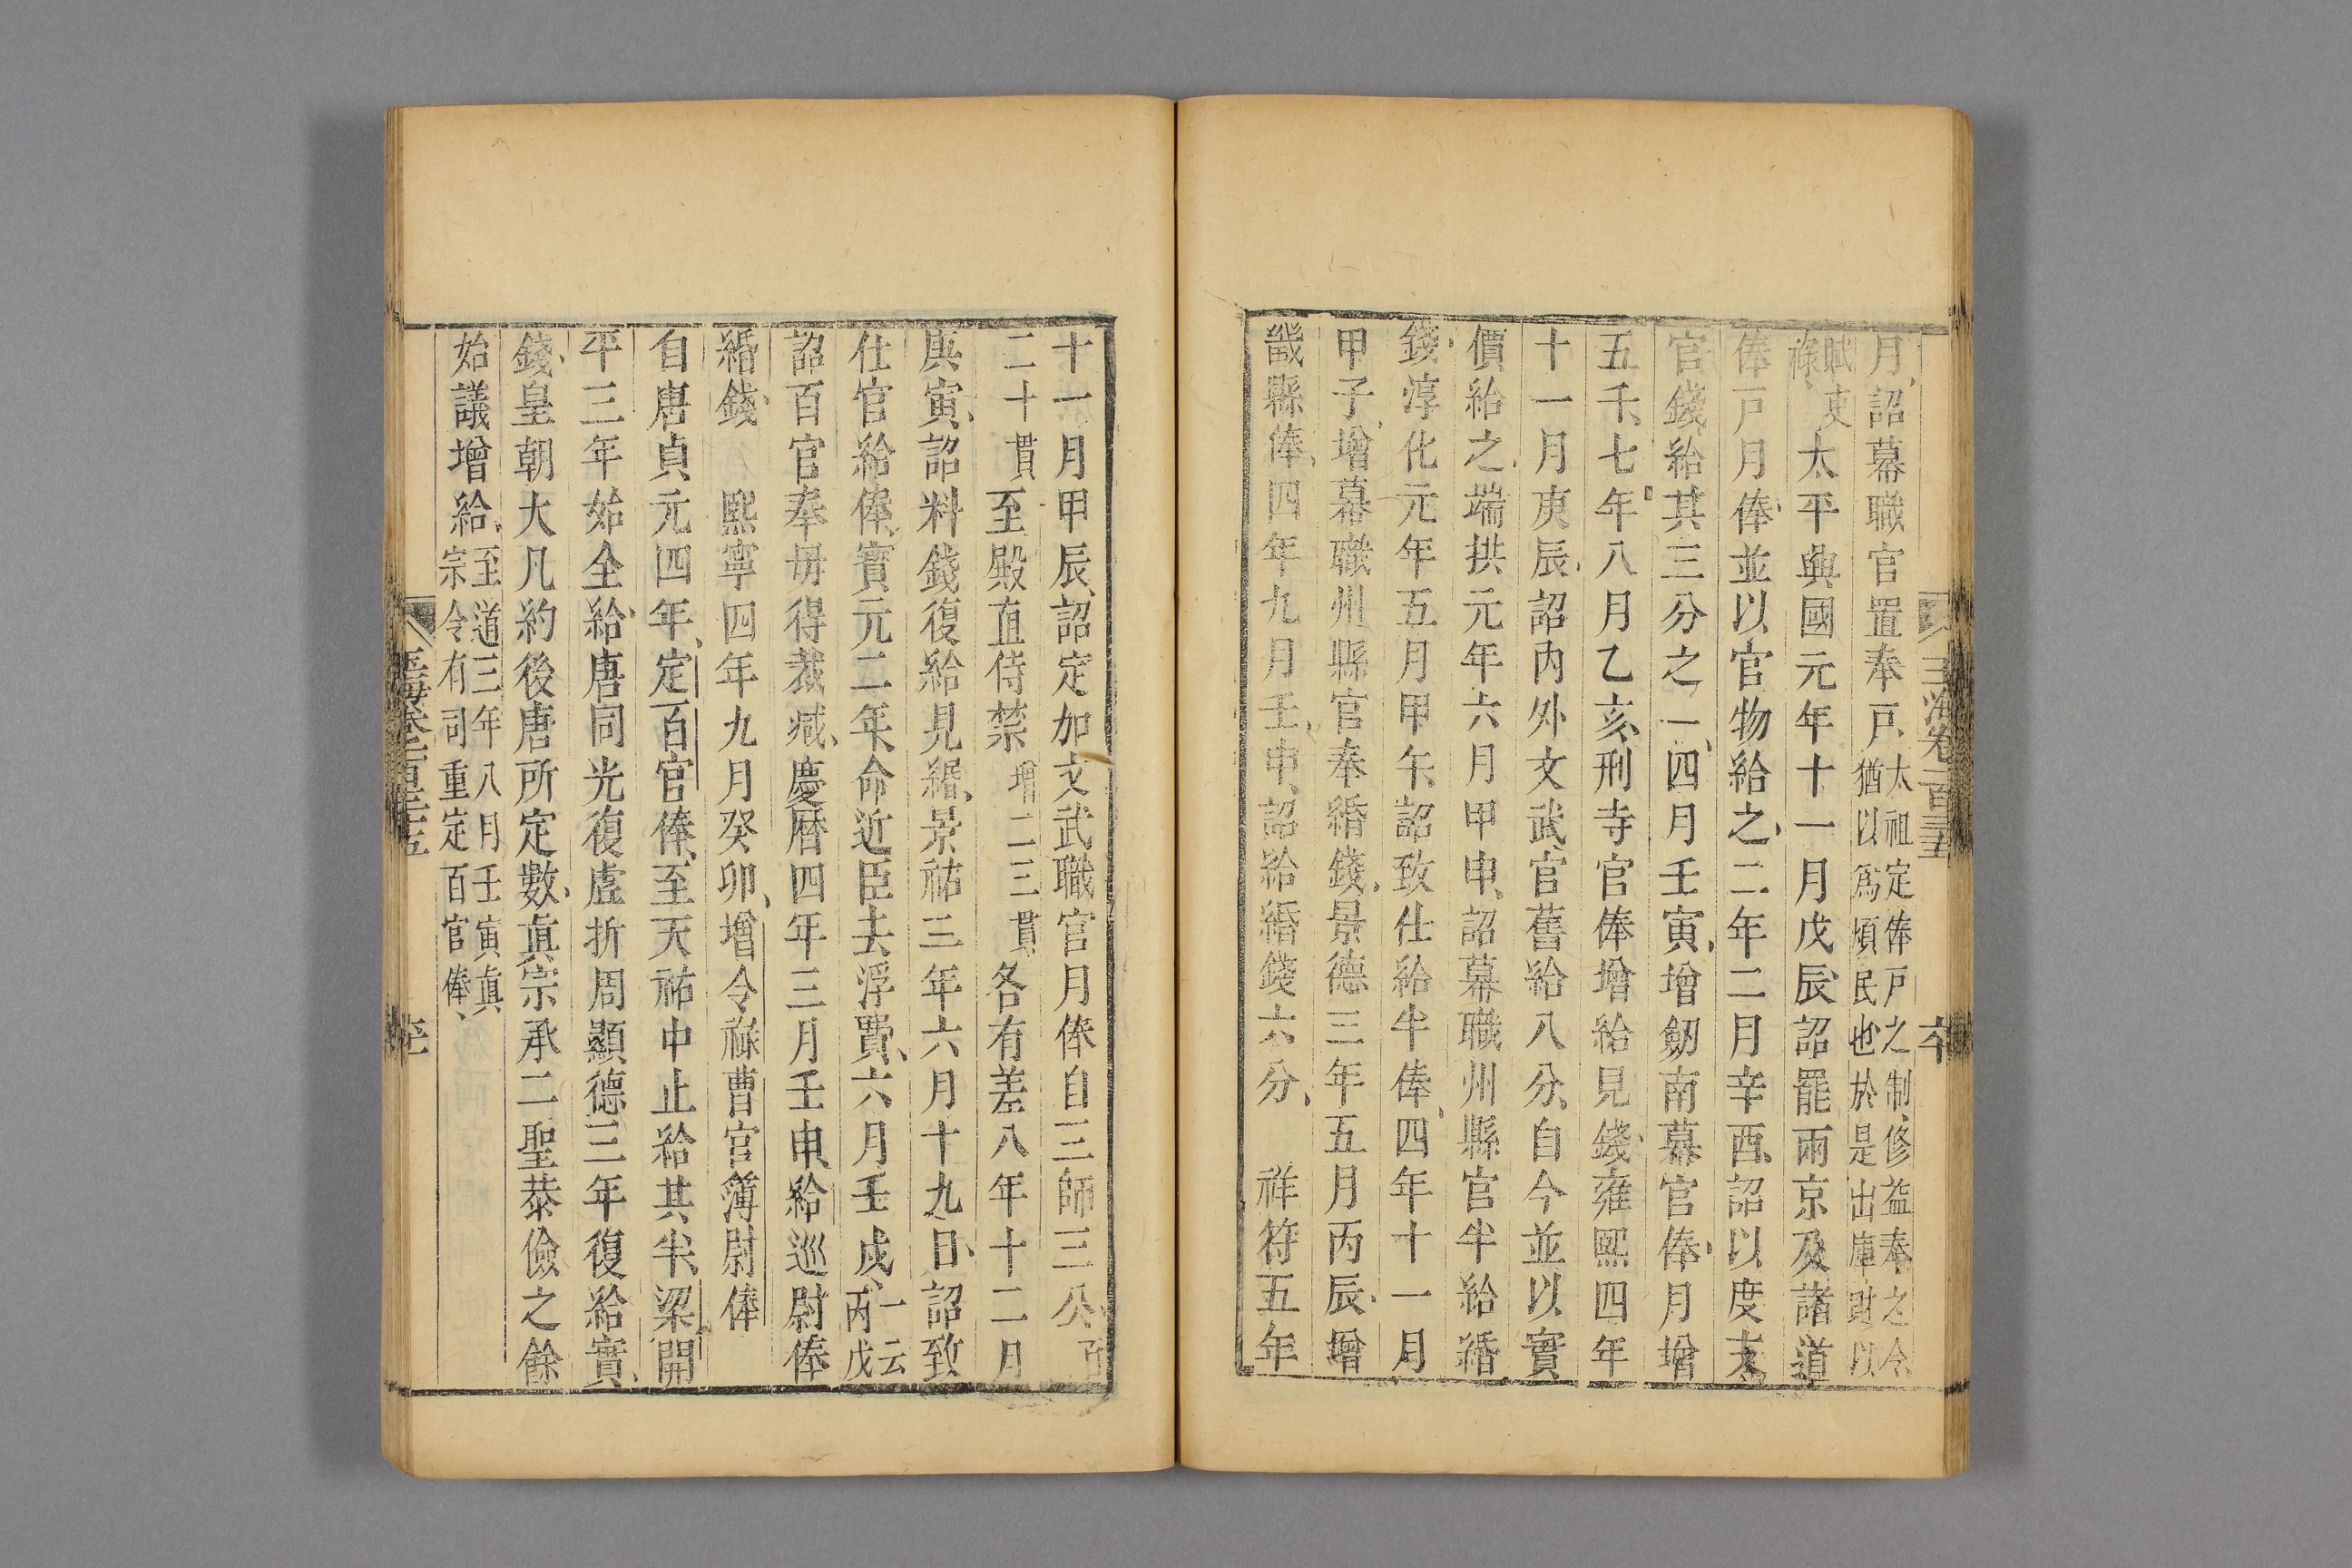 玉海卷一百三五
月詔幕職官置奉戸太祖定俸戸之制修益奉之令
猶以爲煩民也於是出庫財以
賦吏
祿太平興國元年十一月戊辰詔罷兩京及諸道
俸戸月俸並以官物給之二年二月辛酉詔以度支
官錢給其三分之一四月壬寅增劒南幕官俸月增
五千七年八月乙亥刑寺官俸增給見錢雍熙四年
十一月庚辰詔内外文武官舊給八分自今並以實
價給之端拱元年六月甲申詔幕職州縣官半給緡
錢淳化元年五月甲午詔致仕給半俸四年十一月
甲子增幕職州縣官奉緡錢景德三年五月丙辰增
畿縣俸四年九月壬申詔給緡錢六分 祥符五年
十一月甲辰詔定加文武職官月俸自三師三公百
二十貫至殿直侍禁增二三貫各有差八年十二月
庚寅詔料錢復給見緡景祐三年六月十九日詔致
仕官給俸寶元二年命近臣去浮費六月壬戌一云
丙戌
詔百官奉毋得裁减慶曆四年三月壬申給巡尉俸
緡錢 熙寧四年九月癸卯增令祿曹官簿尉俸
自唐貞元四年定百官俸至天祐中止給其半梁開
平三年始全給唐同光復虛折周顯德三年復給實
錢皇朝大凡約後唐所定數眞宗承二聖恭儉之餘
始議增給至道三年八月壬寅眞
宗令有司重定百官俸